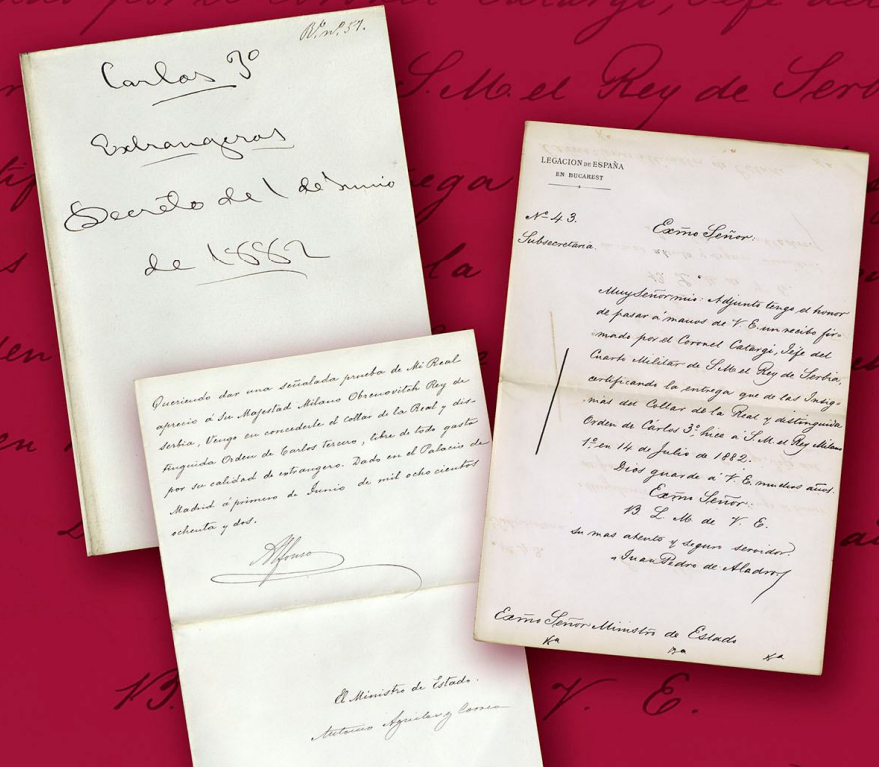 Carlos 3º
Extrangeros
Decreto de 1 de Junio
de 1882
Queriendo dar una señalada prueba de Mi Real
aprecio á Su Majestad Milano Obrenovitch Rey de
Serbia, Vengo en concederle el collar de la Real y dis-
tinguida Orden de Carlos tercero, libre de todo gasto
por su calidad de extrangero. Dado en el Palacio de
Madrid á primero de Junio de mil ochocientos
ochenta y dos.
Alfonso
El Ministro de Estado.
Antonio Aguilar y Correa
LEGACION DE ESPAÑA
EN BUCAREST
Nº 43.
Subsecretaria.
Exmo Señor:
Muy Señor mio: Adjunto tengo el honor
de pasar á manos de V. E. un recibo fir-
mado por el Coronel Catargi, Jefe del
Cuarto Militar de S. M. el Rey de Serbia,
certificando la entrega que de las Insig-
nias del Collar de la Real y distinguida
Orden de Cárlos 3º hice á S. M. el Rey Milano
1º en 14 de Julio de 1882.
Dios guarde á V. E. muchos años.
Exmo Señor:
B L M de V. E.
su mas atento y seguro servidor
Juan Pedro de Aladro
Exmo Señor Ministro de Estado
S. M. el Rey de Serb